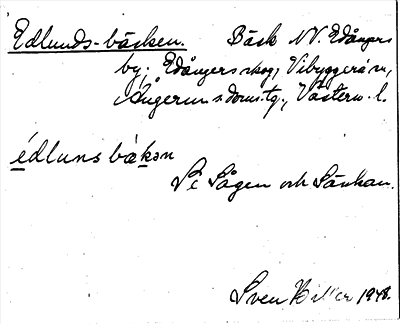 Edlunds-bäcken. Bäck NV. Edångers
by; Edångers skog, Vibyggerå sn,
Ångerm:s doms.tg., Västern. l.
édluns bäkən
Se Sågen och Sänkan.
Sven 1948.